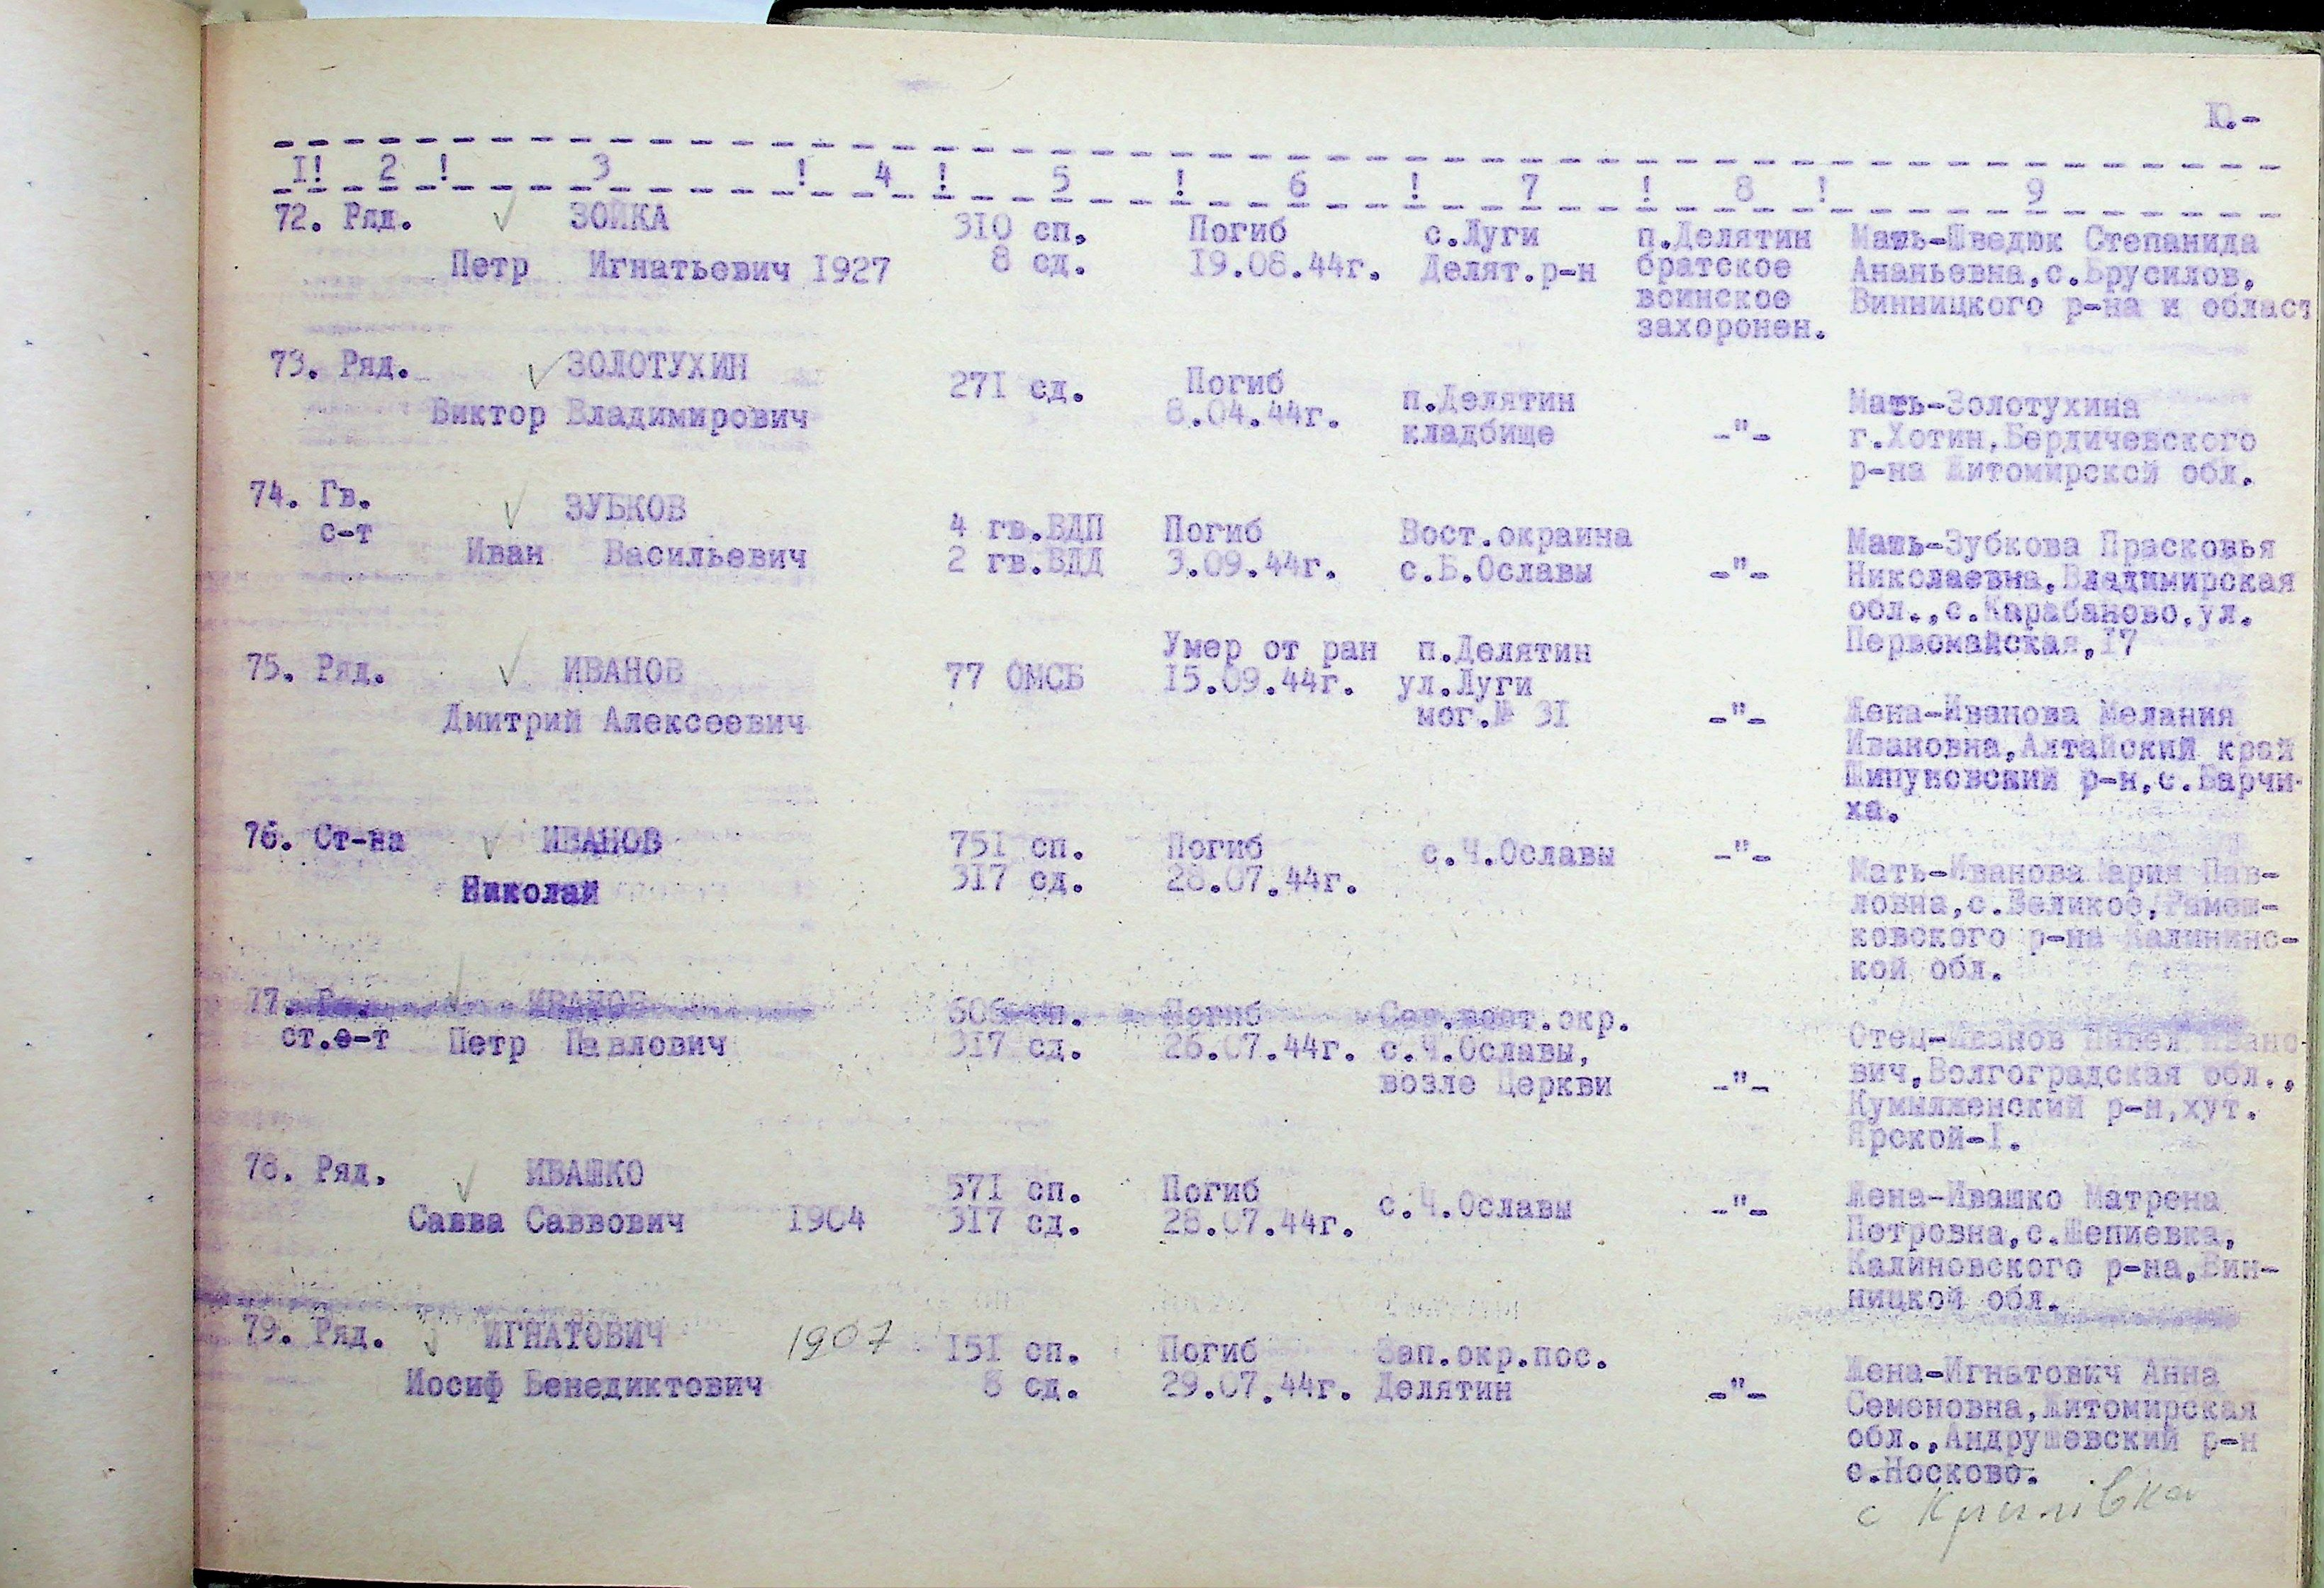 10.-
1! 2 ! 3 ! 4 ! 5 ! 6 ! 7 ! 8 ! 9
72. Ряд. ЗОЙКА 310 сп. Погиб с.Луги п.Делятин Мать-Шведюк Степанида
Петр Игнатьевич 1927 8 сд. 19.08.44г. Делят.р-н братское Ананьевна,с.Брусилов,
воинское Винницкого р-на и област
захоронен.
73. Ряд. ЗОЛОТУХИН 271 сд. Погиб п.Делятин Мать-Золотухина
Виктор Владимирович 8.04.44г. кладбище -"- г.Хотин,Бердичевского
р-на Житомирской обл.
74. Гв. ЗУБКОВ 4 гв.ВДП Погиб Вост.окраина Мать-Зубкова Прасковья
с-т Иван Васильевич 2 гв.ВДД 3.09.44г. с.Б.Ославы -"- Николаевна,Владимирская
обл.,с.Карабаново,ул.
Первомайская,17
75. Ряд. ИВАНОВ 77 ОМСБ Умер от ран п.Делятин
Дмитрий Алексеевич 15.09.44г. ул.Луги
мог.№ 31 -"- Жена-Иванова Мелания
Ивановна,Алтайский край
Шипуновский р-н,с.Барчи-
ха.
76. Ст-на ИВАНОВ 751 сп. Погиб с.Ч.Ославы -"- Мать-Иванова Мария Пав-
Николай 317 сд. 28.07.44г. ловна,с.Великое,Рамеш-
ковского р-на Калининс-
кой обл.
77. ИВАНОВ 606 сп. Погиб Сев.вост.окр. Отец-Иванов Павел Ивано-
ст.с-т Петр Павлович 317 сд. 26.07.44г. с.Ч.Ославы, вич,Волгоградская обл.,
возле Церкви -"- Кумылженский р-н,хут.
Ярской-1.
78. Ряд. ИВАШКО 571 сп. Погиб с.Ч.Ославы -"- Жена-Ивашко Матрена
Савва Саввович 1904 317 сд. 28.07.44г. Петровна,с.Шепиевка,
Калиновского р-на,Вин-
ницкой обл.
79. Ряд. ИГНАТОВИЧ 1907 151 сп. Погиб Зап.окр.пос. Жена-Игнатович Анна
Иосиф Бенедиктович 8 сд. 29.07.44г. Делятин -"- Семеновна,Житомирская
обл.,Андрушевский р-н
с.Носково.
с